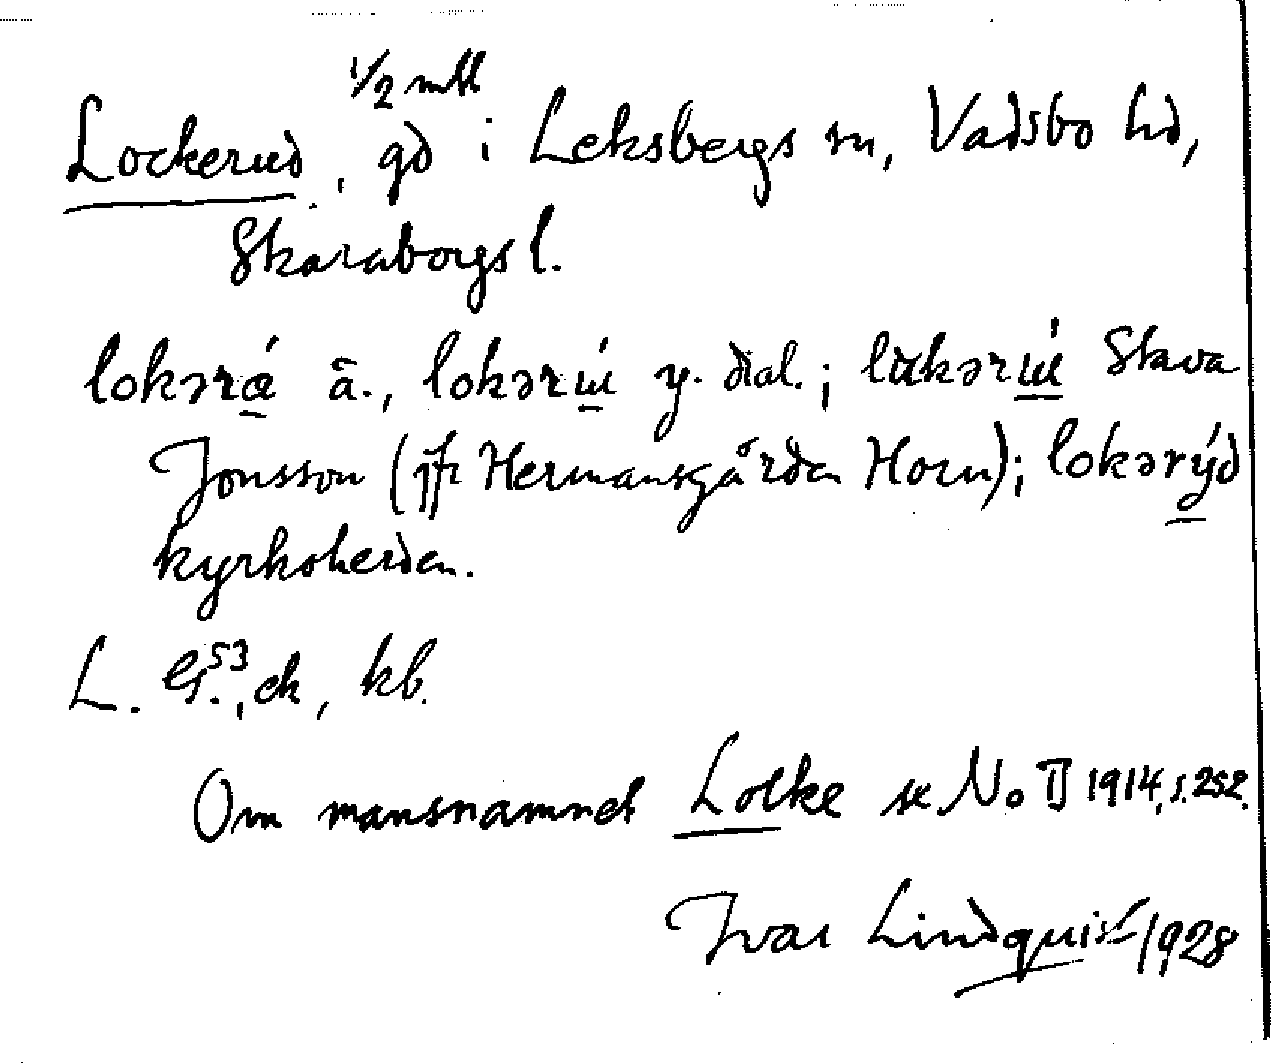 1/2 mtl
Lockerud, gd i Leksbergs sn, Vadsbo hd,
Skaraborgs l.
lokərǽ ä., lokərɯ́ y. dial.; lukərɯ́ Stava
Jonsson (jfr Hermansgården Horn); lokərýd
kyrkoherden.
L. G.53, ek, kb.
Om mansnamnet Lokke se No II 1914, s. 252.
Ivar Lindquist 1928